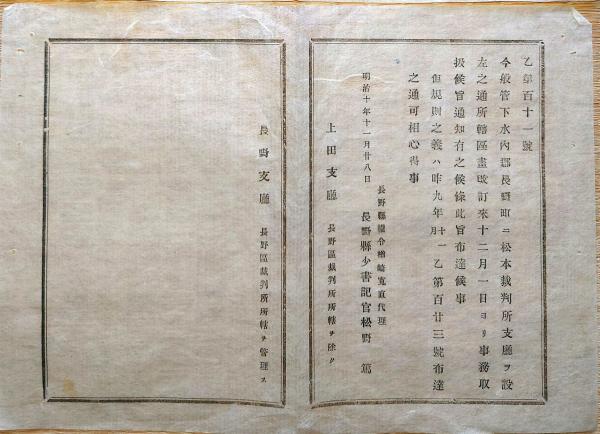 乙第百十一號
今般管下水內郡長野町ニ松本裁判所支廳ヲ設
左之通所轄區畫改訂來十二月一日ヨリ事務取
扱候旨通知有之候條此旨布達候事
但規則之義ハ昨九年十一月乙第百廿三號布達
之通可相心得事
明治十年十一月廿八日
長野縣權令楢崎寬直代理
長野縣少書記官松野 篤
上田支廳 長野區裁判所所轄ヲ除ク
長野支廳 長野區裁判所所轄ヲ管理ス